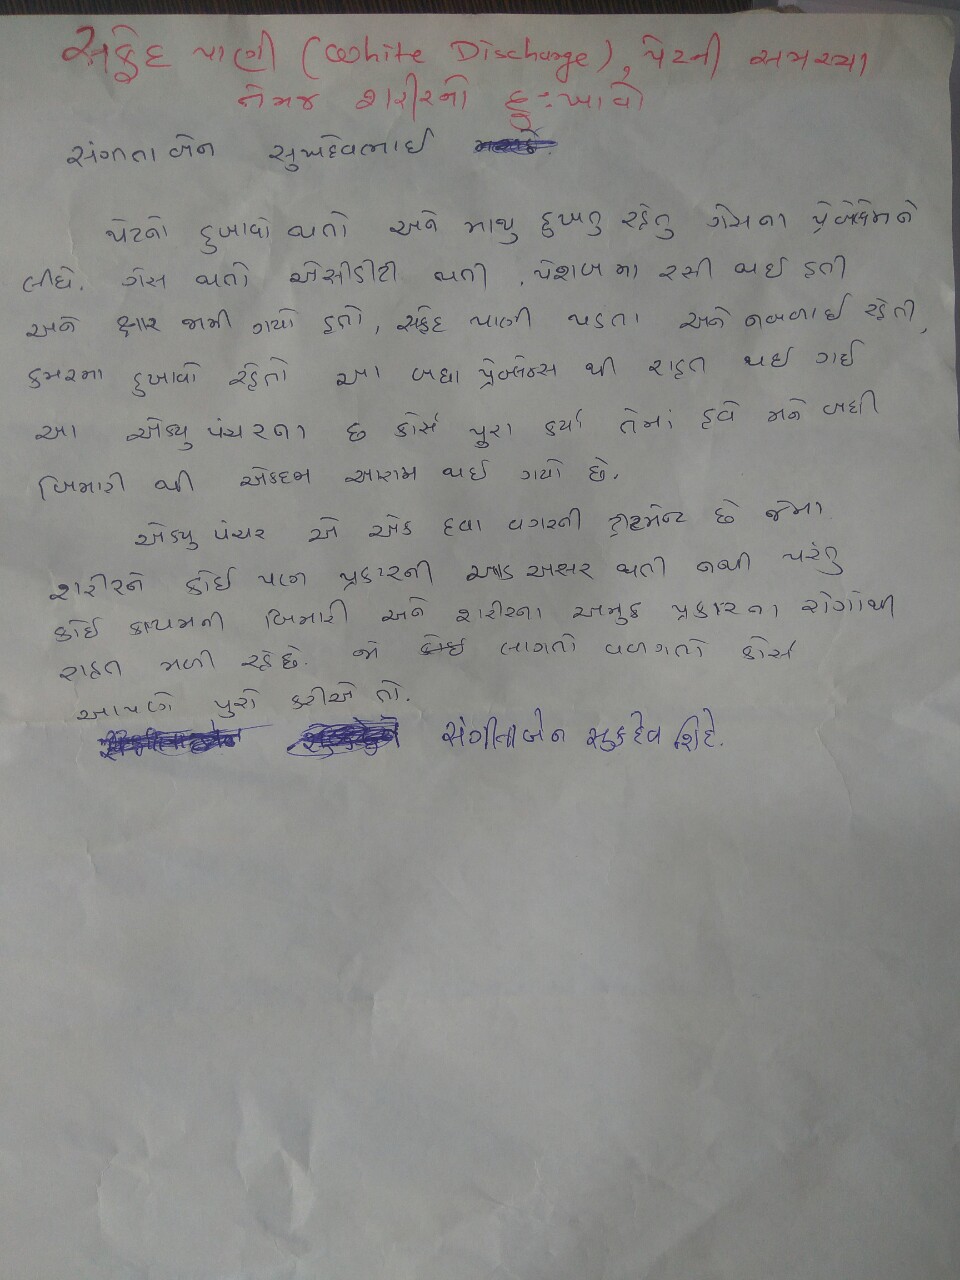 સફેદ પાણી (White Discharge), પેટની સમસ્યા
તેમજ શરીરનો દુઃખાવો
સંગીતાબેન સુખદેવભાઈ
પેટનો દુખાવો થતો અને માથુ દુખતુ રહેતુ ગેસના પ્રોબ્લેમને
લીધે. ગેસ થતો એસીડીટી થતી, પેશાબમા રસી થઈ હતી
અને ક્ષાર જામી ગયો હતો, સફેદ પાણી પડતા અને નબળાઈ રહેતી,
કમરમા દુખાવો રહેતો આ બધા પ્રોબ્લેમ્સ થી રાહત થઈ ગઈ
આ એક્યુપંચરના છ કોર્સ પુરા કર્યા તેમાં હવે મને બધી
બિમારી થી એકદમ આરામ થઈ ગયો છે.
એક્યુપંચર એ એક દવા વગરની ટ્રીટમેન્ટ છે જેમા
શરીરને કોઈ પણ પ્રકારની આડ અસર થતી નથી પરંતુ
કોઈ કાયમની બિમારી અને શરીરના અમુક પ્રકારના રોગોથી
રાહત મળી રહે છે. જો લાગતો વળગતો કોર્સ
આપણે પુરો કરીએ તો.
સંગીતાબેન સુકદેવ શિંદે.